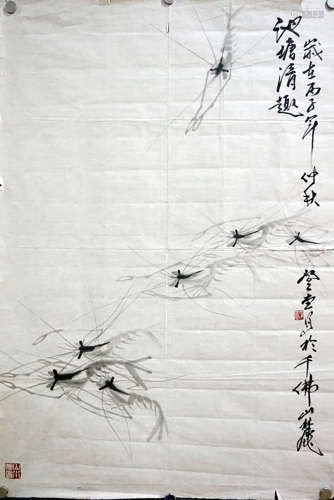 池塘清趣
岁在丙子年 仲秋
登云月於千佛山麓